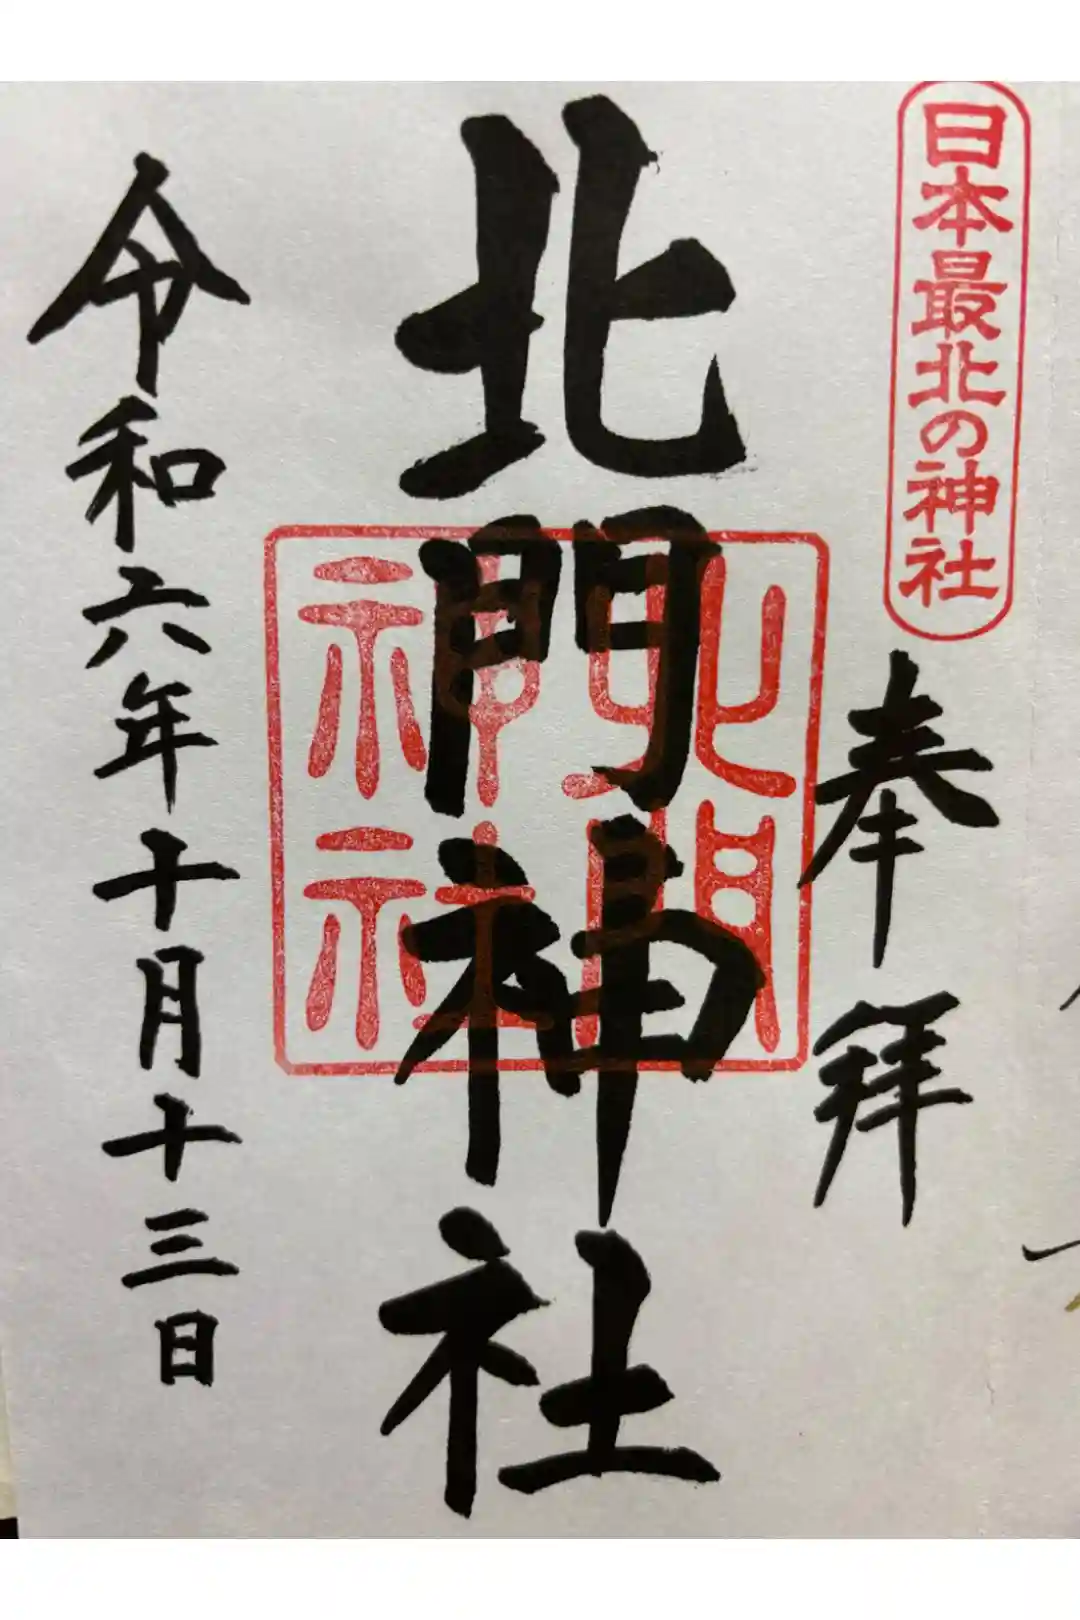 日本最北の神社
奉拝
北門神社
北門
神社
令和六年十月十三日